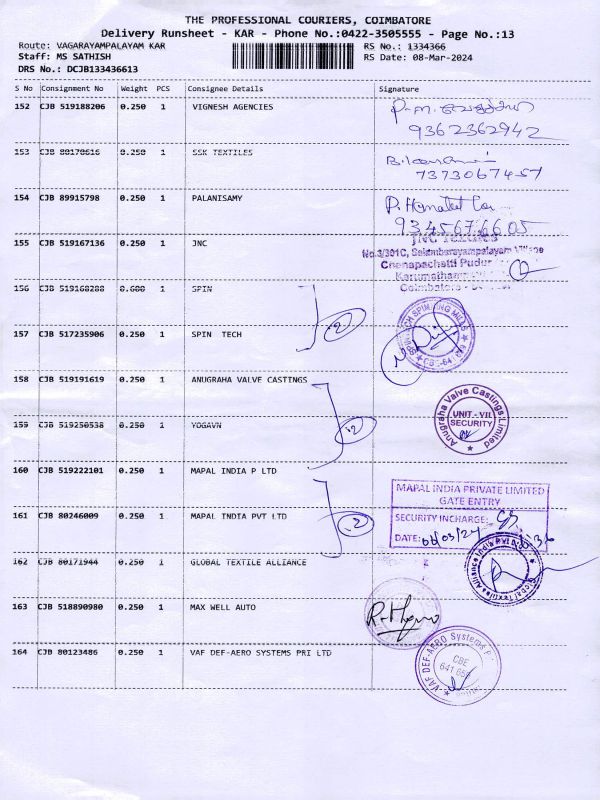 THE PROFESSIONAL COURIERS, COIMBATORE
Delivery Runsheet - KAR - Phone No.:0422-3505555 - Page No.:13
Route: VAGARAYAMPALAYAM KAR
RS No.: 1334366
Staff: MS SATHISH
RS Date: 08-Mar-2024
DRS No.: DCJB133436613
S No Consignment No Weight PCS Consignee Details Signature
152 CJB 519188206 0.250 1 VIGNESH AGENCIES
9362362942
153 CJB 80170616 0.250 1 SSK TEXTILES
7373067457
154 CJB 89915798 0.250 1 PALANISAMY
9345676605
155 CJB 519167136 0.250 1 JNC
No.3/301C, Selambarayampalayam Village
Chenapachetti Pudur
Coimbatore
156 CJB 519168288 0.600 1 SPIN
2
SPINNING MILLS
157 CJB 517235906 0.250 1 SPIN TECH
158 CJB 519191619 0.250 1 ANUGRAHA VALVE CASTINGS
Anugraha Valve Castings Limited
UNIT - VII
SECURITY
159 CJB 519250538 0.250 1 YOGAVN
2
160 CJB 519222101 0.250 1 MAPAL INDIA P LTD
MAPAL INDIA PRIVATE LIMITED
GATE ENTRY
161 CJB 80246009 0.250 1 MAPAL INDIA PVT LTD
2
SECURITY INCHARGE:
DATE:
162 CJB 80171944 0.250 1 GLOBAL TEXTILE ALLIANCE
Global Textile Alliance India Pvt Ltd
163 CJB 518890980 0.250 1 MAX WELL AUTO
164 CJB 80123486 0.250 1 VAF DEF-AERO SYSTEMS PRI LTD
VAF DEF-AERO Systems
CBE